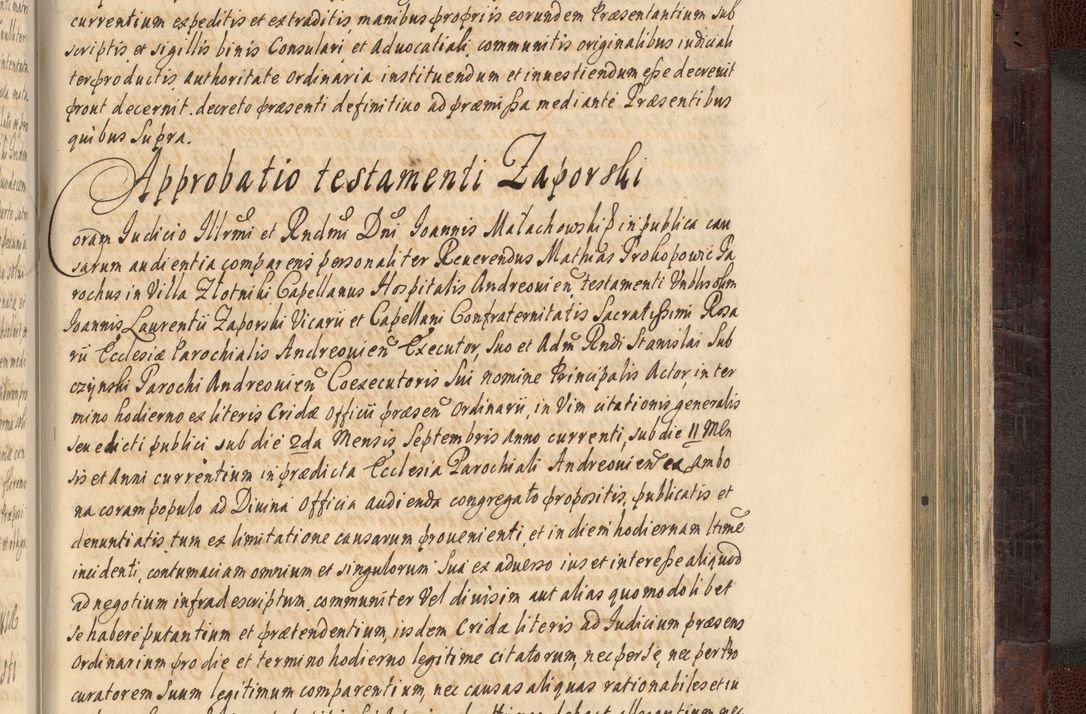 currentium expeditis et extraditis, manibus propriis eorundem Præsentantium sub
scriptis et sigillis binis Consulari et Aduocatiali communitis originalibus iudiciali
ter productis, authoritate ordinaria instituendum et inuestiendum esse decreuit
prout decernit decreto præsenti definitiuo ad præmissa mediante Præsentibus
quibus supra.
Approbatio testamenti Zaporski
Coram Judicio Illrmi et Rndmi Dni Joannis Małachowski in publica cau
sarum audientia comparens personaliter Reuerendus Mathias Prokopowic Pa
rochus in Villa Złotniki Capellanus Hospitalis Andreouien testamenti Vnblis olim
Joannis Laurentii Zaporski Vicarii et Capellani Confraternitatis Sacratissimi Rosa
rii Ecclesiæ Parochialis Andreouien Executor, suo et Adm Rndi Stanislai Sub
czynski Parochi Andreouien Coexecutoris sui nomine Principalis Actor, in ter
mino hodierno ex literis Cridæ Officii præsen Ordinarii, in Vim citationis generalis
seu edicti publici sub die 2da Mensis Septembris anno currenti, sub die 11 Men
sis et Anni currentium in prædicta Ecclesia Parochiali Andreouien ex ambo
na coram populo ad Diuina Officia audienda congregato propositis, publicatis et
denuntiatis, tum ex limitatione causarum prouenienti, et in diem hodiernam ltime
incidenti, contumaciam omnium et singulorum sua ex aduerso ius et interesse aliquod
ad negotium infradescriptum, communiter Vel diuisim aut alias quomodolibet
se habere putantium et prætendentium, iisdem Cridæ literis ad Judicium præsens
Ordinarium pro die et termino hodierno legitime citatorum, nec per se, nec per Pro
curatorem suum legitimum comparentium, nec causas aliquas rationabiles et iu